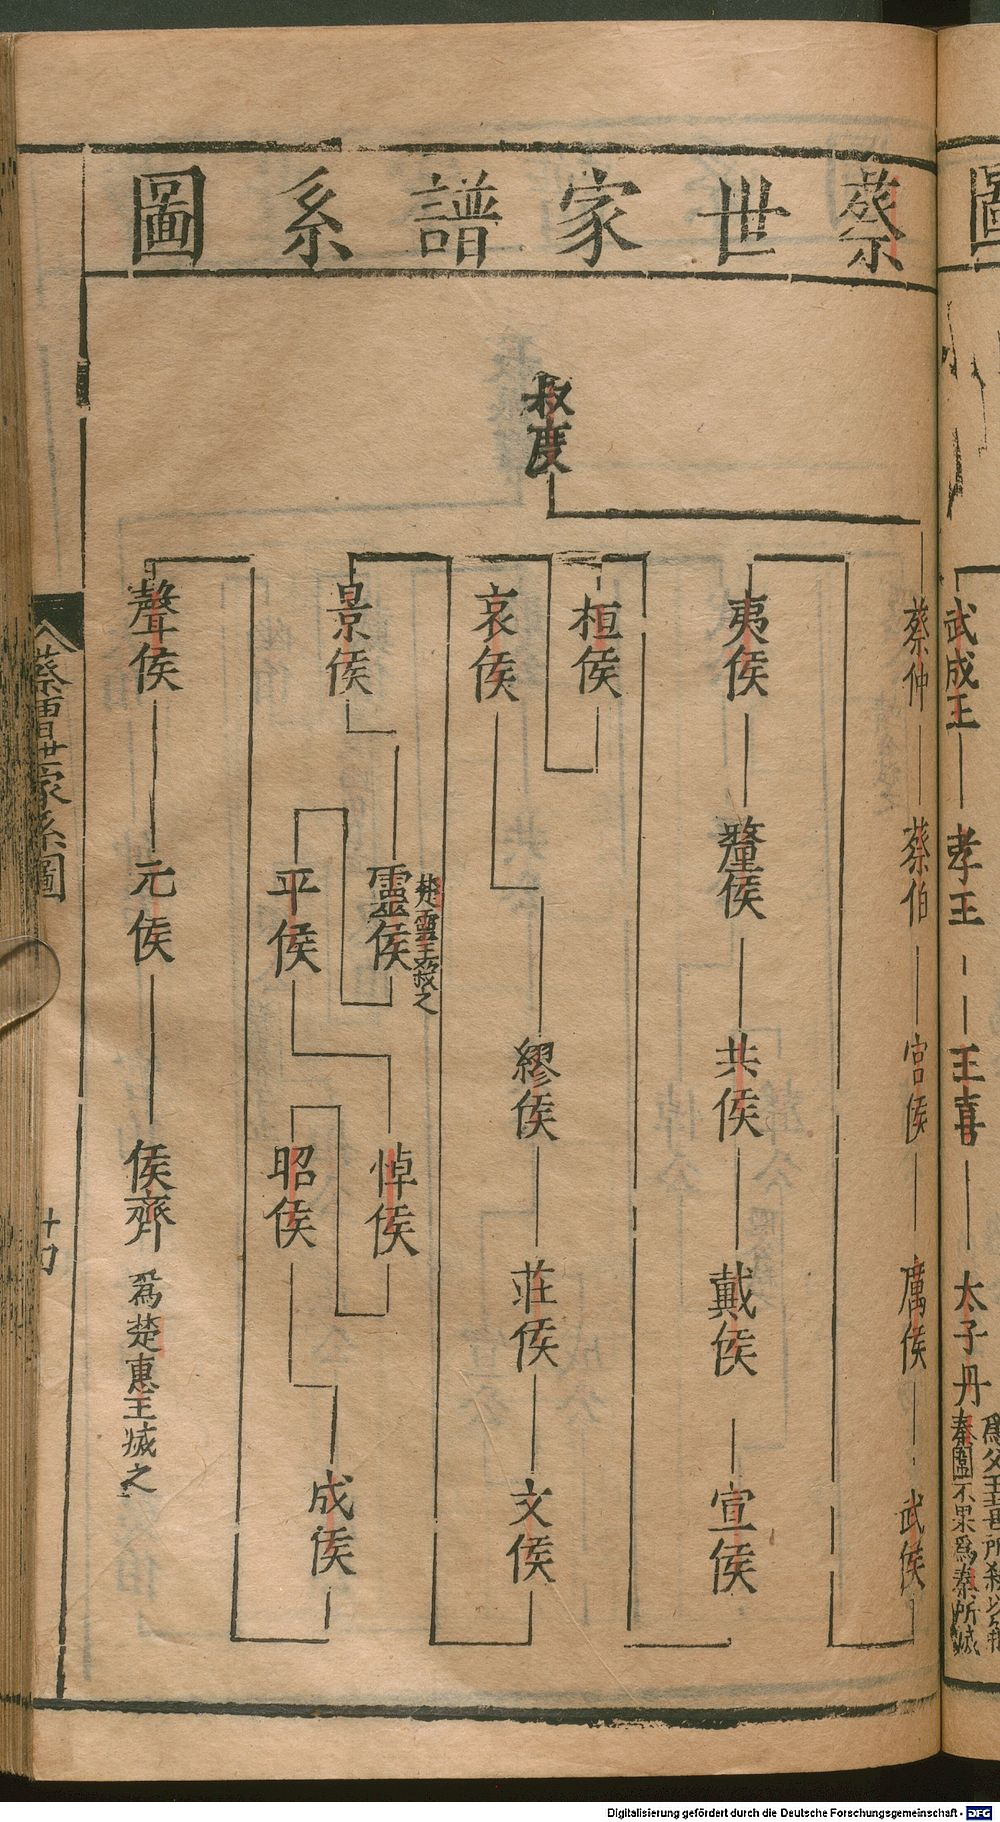 蔡世家譜系圖
叔度
蔡仲
蔡伯
宮侯
厲侯
武侯
夷侯
釐侯
共侯
戴侯
宣侯
桓侯
哀侯
繆侯
莊侯
文侯
景侯
靈侯
楚靈王殺之
平侯
悼侯
昭侯
成侯
聲侯
元侯
侯齊
爲楚惠王滅之
蔡曹世家系圖
圖
武成王
孝王
王喜
太子丹
爲父王喜所殺以
秦圖不果爲秦所滅
Digitalisierung gefördert durch die Deutsche Forschungsgemeinschaft - DFG